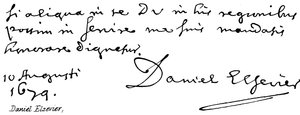 Si aliqua in re Dv in his regionibus
possum inservire me suis mandatis
honorare dignetur.
10 Augusti
1679.
Daniel Elsevier
Daniel Elzevier,